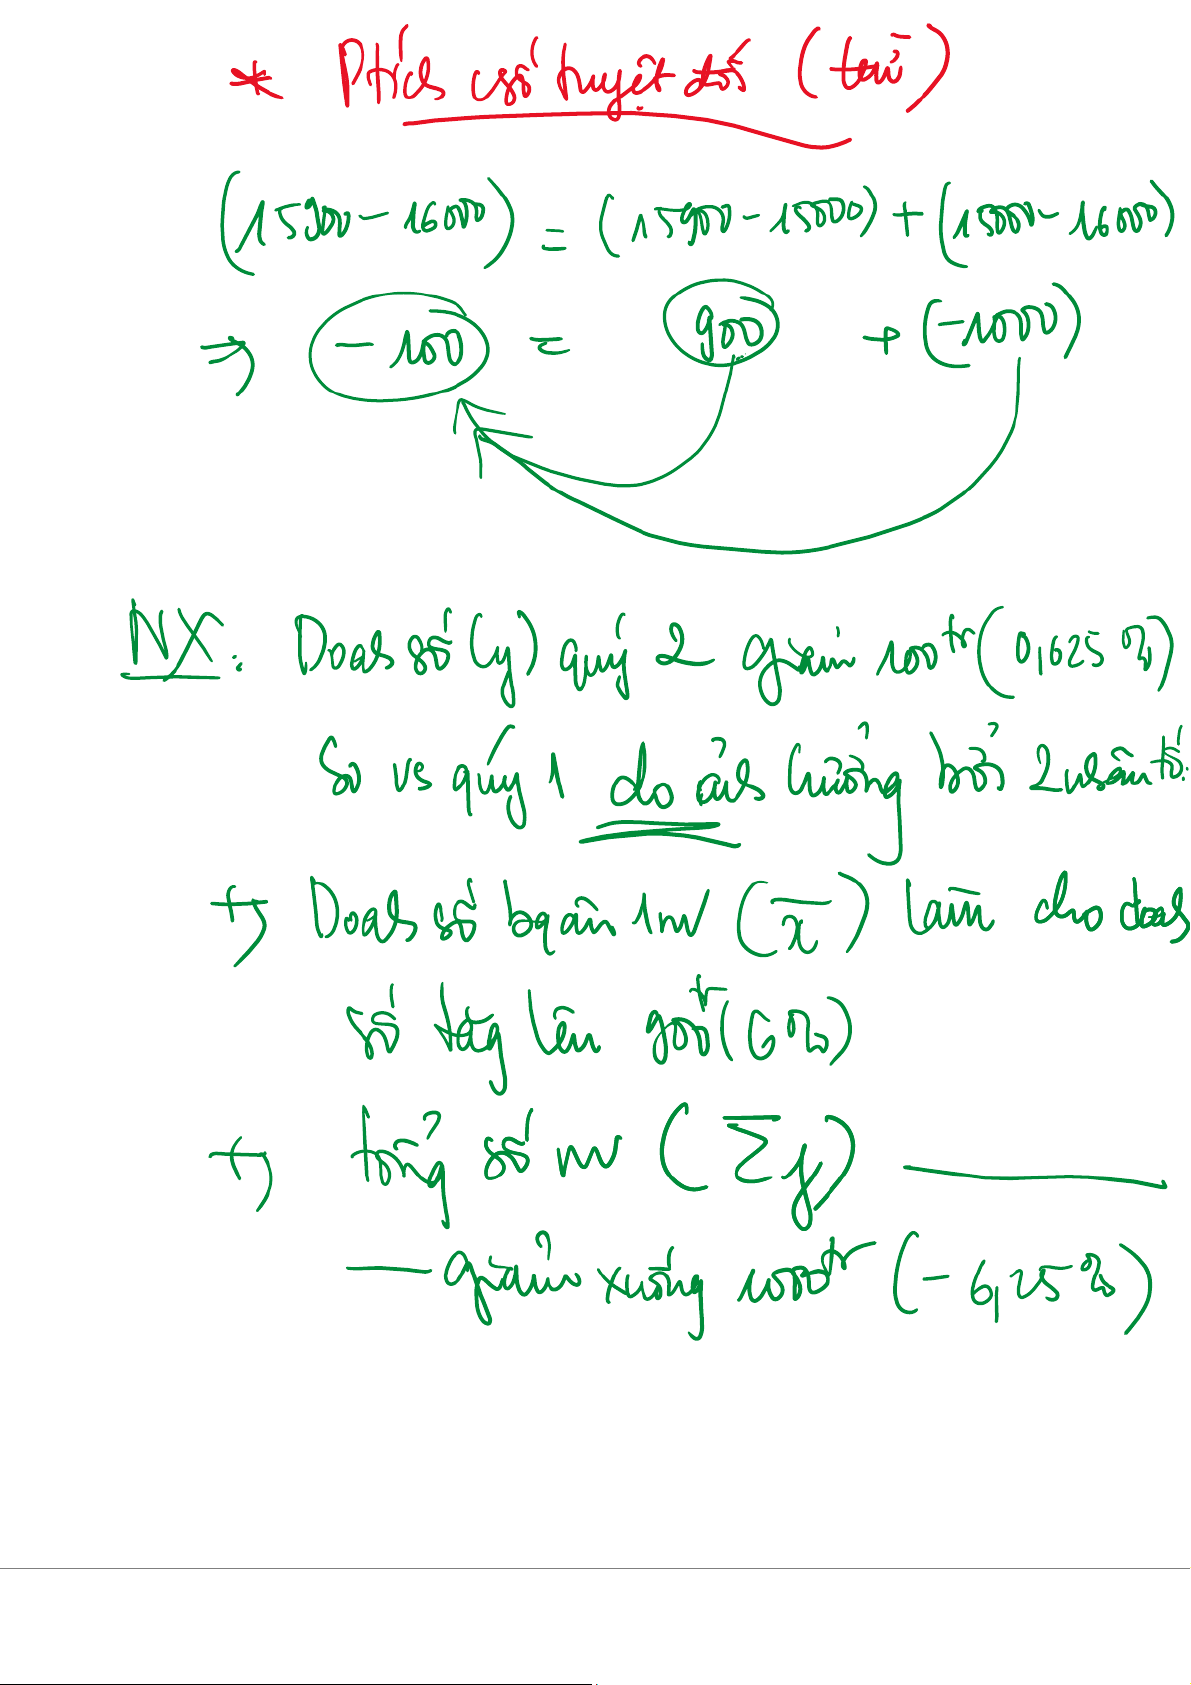 * Ptích csố tuyệt đối (trừ)
(15900 - 16000) = (15900 - 15000) + (15000 - 16000)
⇒ -100 = 900 + (-1000)
NX: Doah số (y) quý 2 giảm 100tr (0,625%)
So vs quý 1 do ảh hưởng bởi 2 nhân tố:
+) Doah số bquân 1nv (x̄) làm cho doah
số tăg lên 900tr (6%)
+) tổng số nv (Σf) ———
— giảm xuống 1000tr (-6,25%)